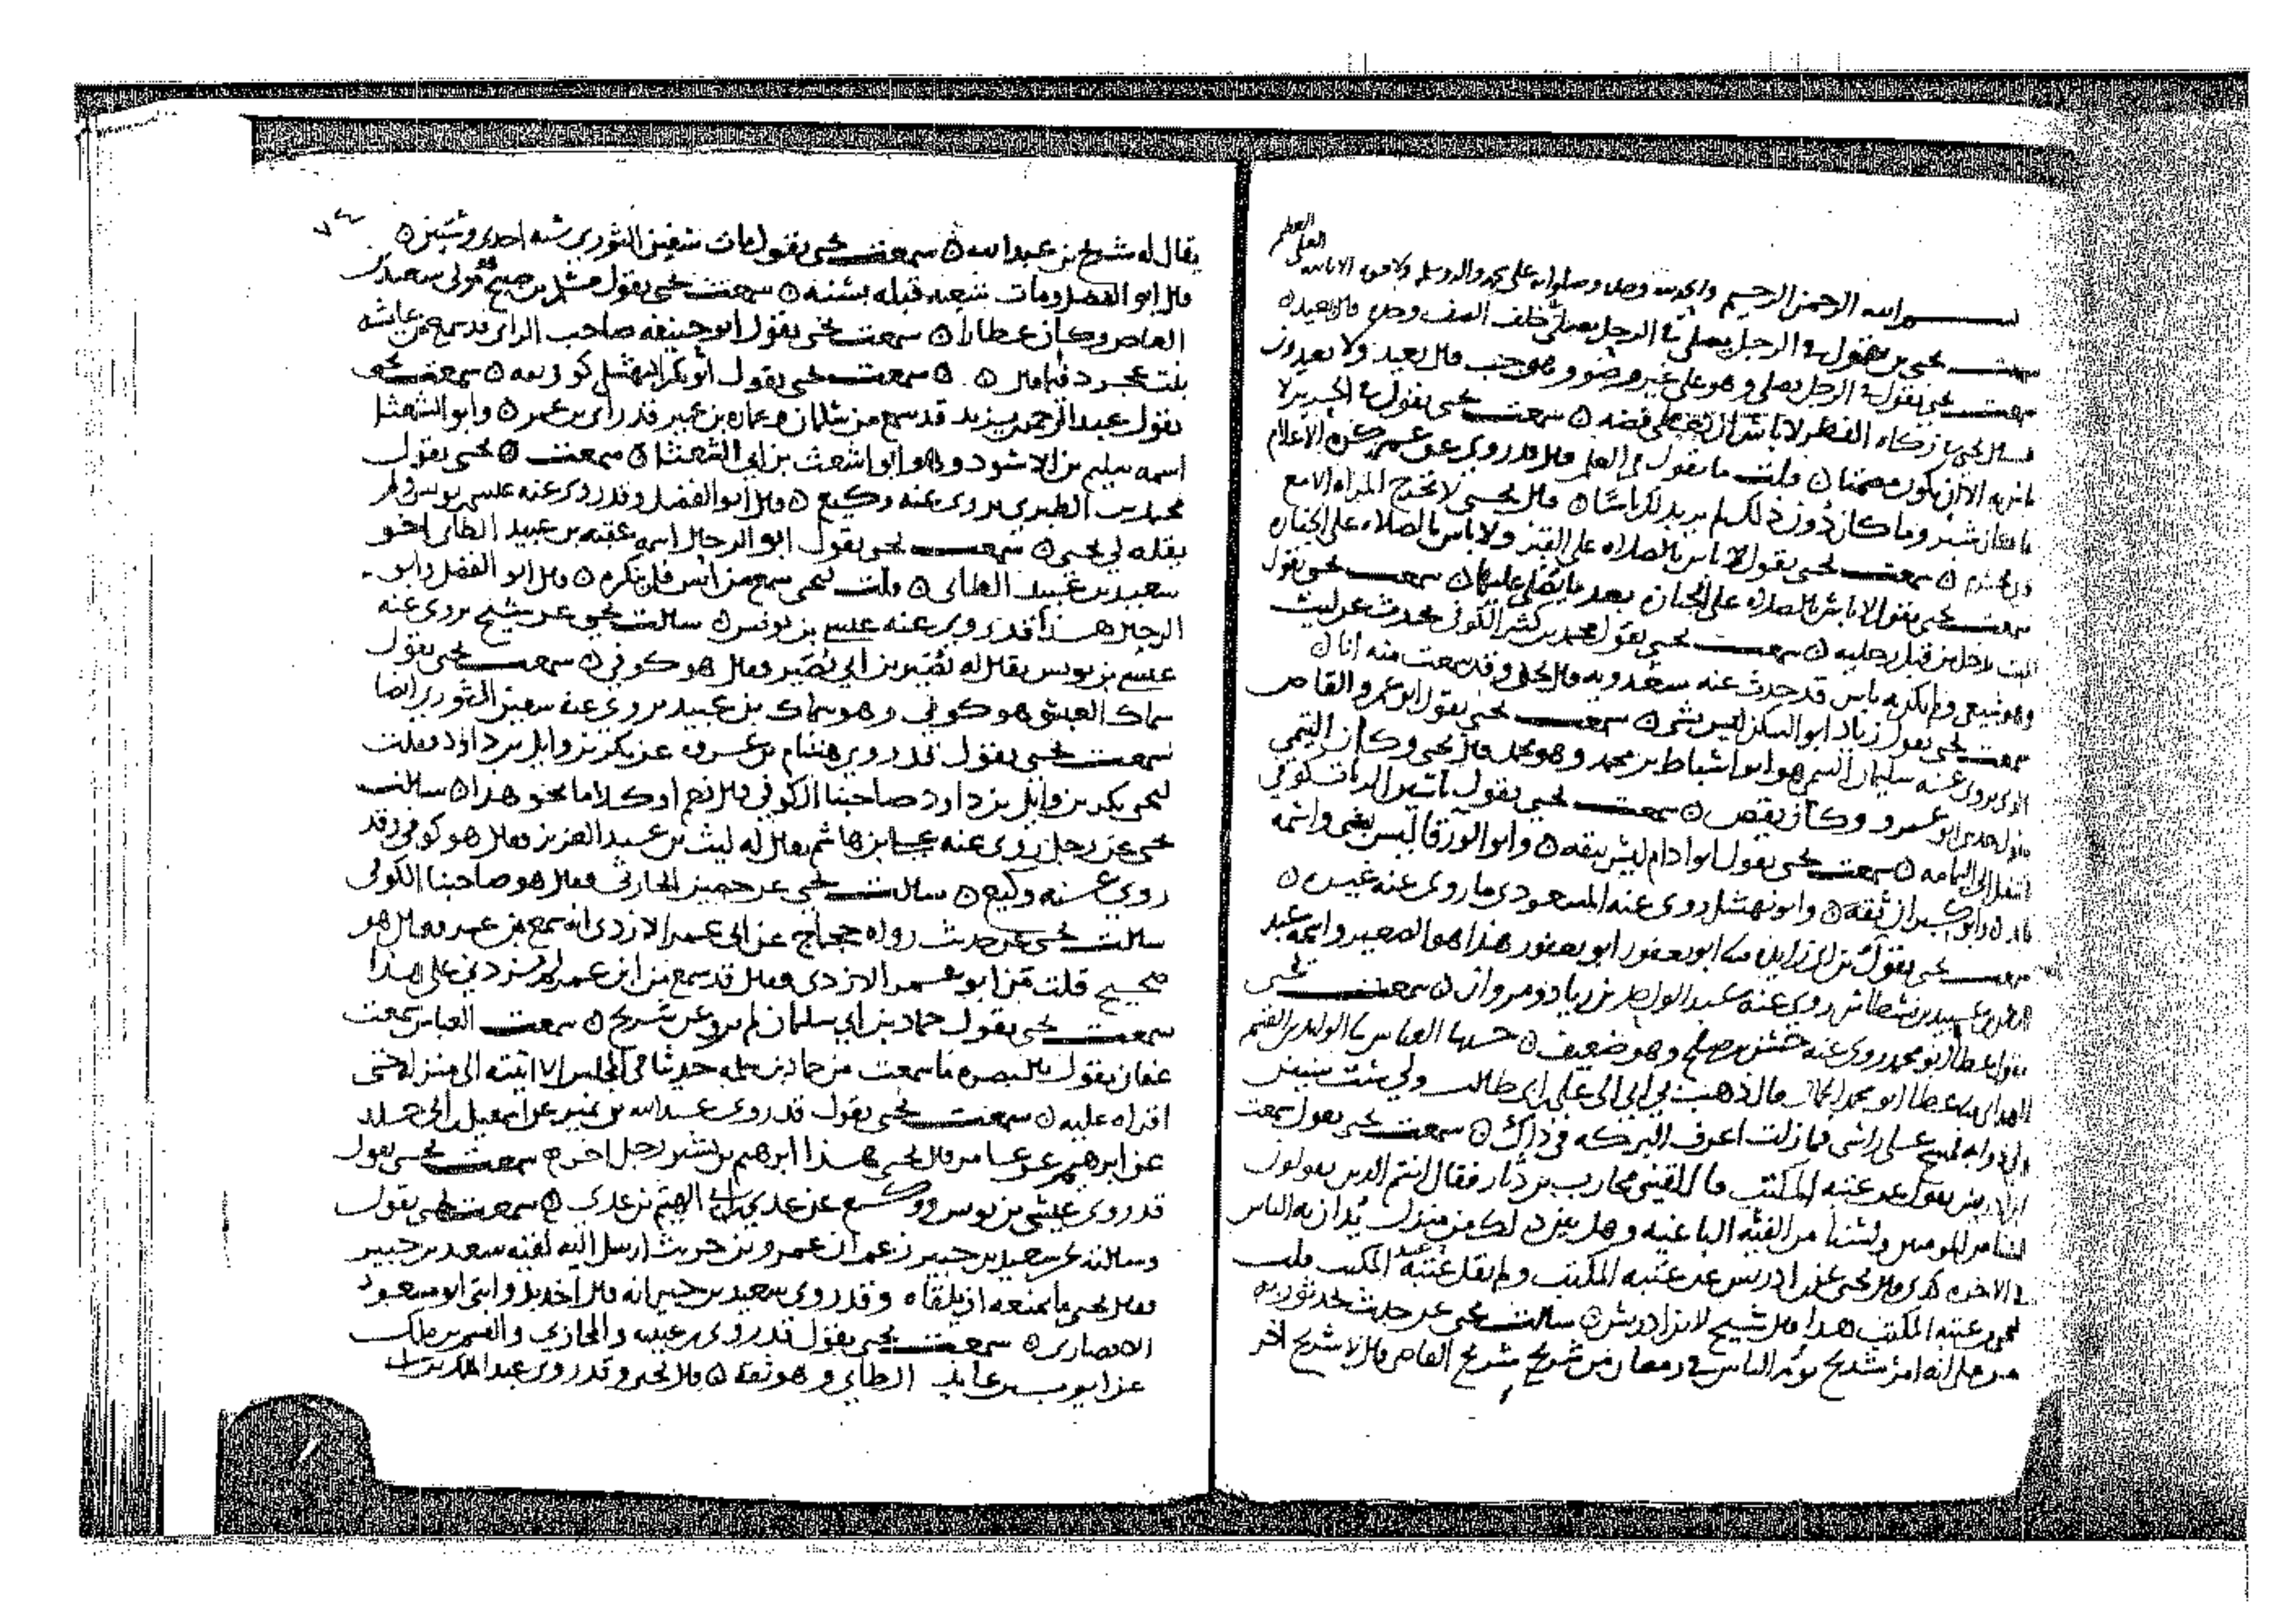 العلي العظيم
بسم الله الرحمن الرحيم والحمد لله وصلى وصلواته على محمد واله وسلم ولا قوه الا بالله
سمعت يحيى يقول في الرجل يصلي خلف الصف وحده قال يعيد ه
سمعت يحيى يقول في الرجل يصلي وهو على غير وضو وهو جنب قال يعيد ولا يعيدون
يحيى زكاه الفطر لا باس ان يعطي فضه ه سمعت يحيى يقول في الحرير لا
الا ان يكون مصمتا ه قلت ما تقول في العلم قال قد روي عن عمر كره الاعلام
وما كان دون ذلك لم ير بذلك باسا ه قال يحيى لا تخرج المراه الا مع
ذي محرم ه سمعت يحيى يقول لا باس بالصلاه على القبر ولا باس بالصلاه على الجنازه
سمعت يحيى يقول لا باس بالصلاه على الجنازه بعد ما يصلى عليها ه سمعت يحيى يقول
الميت يدخل من قبل رجليه ه سمعت يحيى يقول محمد بن كثير الكوفي يحدث عن ليث
وهو شيعي ولم يكن به باس قد حدث عنه سعدويه قال يحيى وقد سمعت منه انا ه
سمعت يحيى يقول زياد ابو السكن ليس بشي ه سمعت يحيى يقول ابو عمرو القاص
الذي يروي عنه سليمان التيمي هو ابو اسباط بن محمد وهو محمد قال يحيى وكان التيمي
يقول حدثني ابو عمرو وكان يقص ه سمعت يحيى يقول ياسين الزيات كوفي
انتقل الى اليمامه ه سمعت يحيى يقول ابو ادام ليس بثقه ه وابو الورقا ليس بشي واسمه
فايد ه وابو كيران ثقه ه وابو نهشل روى عنه المسعودي ما روى عنه غيره ه
سمعت يحيى يقول ابن ابي زايده ابو يعفور ابو يعفور هذا هو الصغير واسمه عبد
الرحمن بن عبيد بن نسطاس روى عنه عبد الواحد بن زياد ومروان ه سمعت يحيى
يقول عطا ابو محمد روى عنه حسن بن صالح وهو ضعيف ه حدثنا العباس نا الوليد بن القسم
الهمداني نا عطا ابو محمد الحمال قال ذهب بي ابي الى علي بن ابي طالب ولي ست سنين
ولي ذوابه فمسح على راسي فما زلت اعرف البركه في ذاك ه سمعت يحيى يقول سمعت
ابن ادريس يقول عن عتبه المكتب قال لقيني محارب بن دثار فقال انتم الذين يقولون
لسنا من المومنين ولسنا من الفيه الباغيه وهل بين ذلك من منزل يدان به الناس
في الاخره قال يحيى عن ابن ادريس عن عتبه المكتب ولم يقل عبيد المكتب قلت
ليحيى عتبه المكتب هذا قال شيخ لابن ادريس ه سالت يحيى عن حديث يحدثونه
عن رجل انه امر شريح يوم الناس في رمضان من شريح شريح القاص قال لا شريح اخر
يقال له شريح بن عبد الله ه سمعت يحيى يقول مات سفين الثوري سنه احدى وستين ه
قال ابو الفضل ومات شعبه قبله بسنه ه سمعت يحيى يقول بن صبيح مولى سعيد بن
العاص وكان عطارا ه سمعت يحيى يقول ابو حنيفه صاحب الراي قد سمع من عايشه
بنت عجرد ه سمعت يحيى يقول ابو بكر النهشلي كوفي ثقه ه سمعت يحيى
يقول عبد الرحمن بن يزيد قد سمع من سلمان وعماره بن عمير قد راى بن عمر ه وابو الشعثا
اسمه سليم بن الاسود وهو ابو اشعث بن ابي الشعثا ه سمعت ه يحيى يقول
محمد بن الطبري يروى عنه وكيع ه قال ابو الفضل وقد روى عنه عيسى بن يونس ولم
يقله لي يحيى ه سمعت يحيى يقول ابو الرحال اسمه عقبه بن عبيد الطاي اخو
سعيد بن عبيد الطاي ه قلت ليحيى سمع من انس فلم ينكره ه قال ابو الفضل وابو
الرحال هذا قد روى عنه عيسى بن يونس ه سالت يحيى عن شيخ يروى عنه
عيسى بن يونس يقال له نصير بن ابي نصير فقال هو كوفي ه سمعت يحيى يقول
سماك العبسي هو كوفي وهو سماك بن عبيد يروى عنه سفين الثوري ايضا
سمعت يحيى يقول قد روى هشام بن عروه عن بكر بن وايل بن داود فقلت
ليحيى بكر بن وايل بن داود صاحبنا الكوفي قال نعم او كلاما نحو هذا ه سالت
يحيى عن رجل روى عنه هاشم يقال له ليث بن عبد العزيز فقال هو كوفي وقد
روى عنه وكيع ه سالت يحيى عن حصين الحارثي فقال هو صاحبنا الكوفي
سالت يحيى عن حديث رواه حجاج عن ابي عمر الازدي انه سمع من عمر فقال هو
صحيح قلت من ابو عمر الازدي فقال قد سمع من ابن عمر لم يزدني على هذا
سمعت يحيى يقول حماد بن ابي سليمان لم يرو عن شريح ه سمعت العباس سمعت
عفان يقول بالبصره ما سمعت من حماد بن سلمه حديثا في المجلس الا اتيته الى منزله حتى
اقراه عليه ه سمعت يحيى يقول قد روى عبد الله بن نمير عن اسمعيل بن ابي خلد
عن ابرهيم عن عامر قال يحيى هذا ابرهيم بن بشير رجل اخر ه سمعت يحيى يقول
قد روى عيسى بن يونس ووكيع عن عدي ابي الهيثم بن عدي ه سمعت يحيى يقول
وسالته عن سعيد بن جبير زعم ان عمرو بن حريث ارسل اليه لقيه سعيد بن جبير
فقال يحيى ما يمنعه ان يلقاه وقد روى سعيد بن جبير انه قال وابي ابو مسعود
الانصاري ه سمعت يحيى يقول قد روى بن عيينه والمحاربي والقسم بن ملك
عن ايوب بن عايذ الطاي وهو ثقه ه قال يحيى وقد روى عبد الملك بن